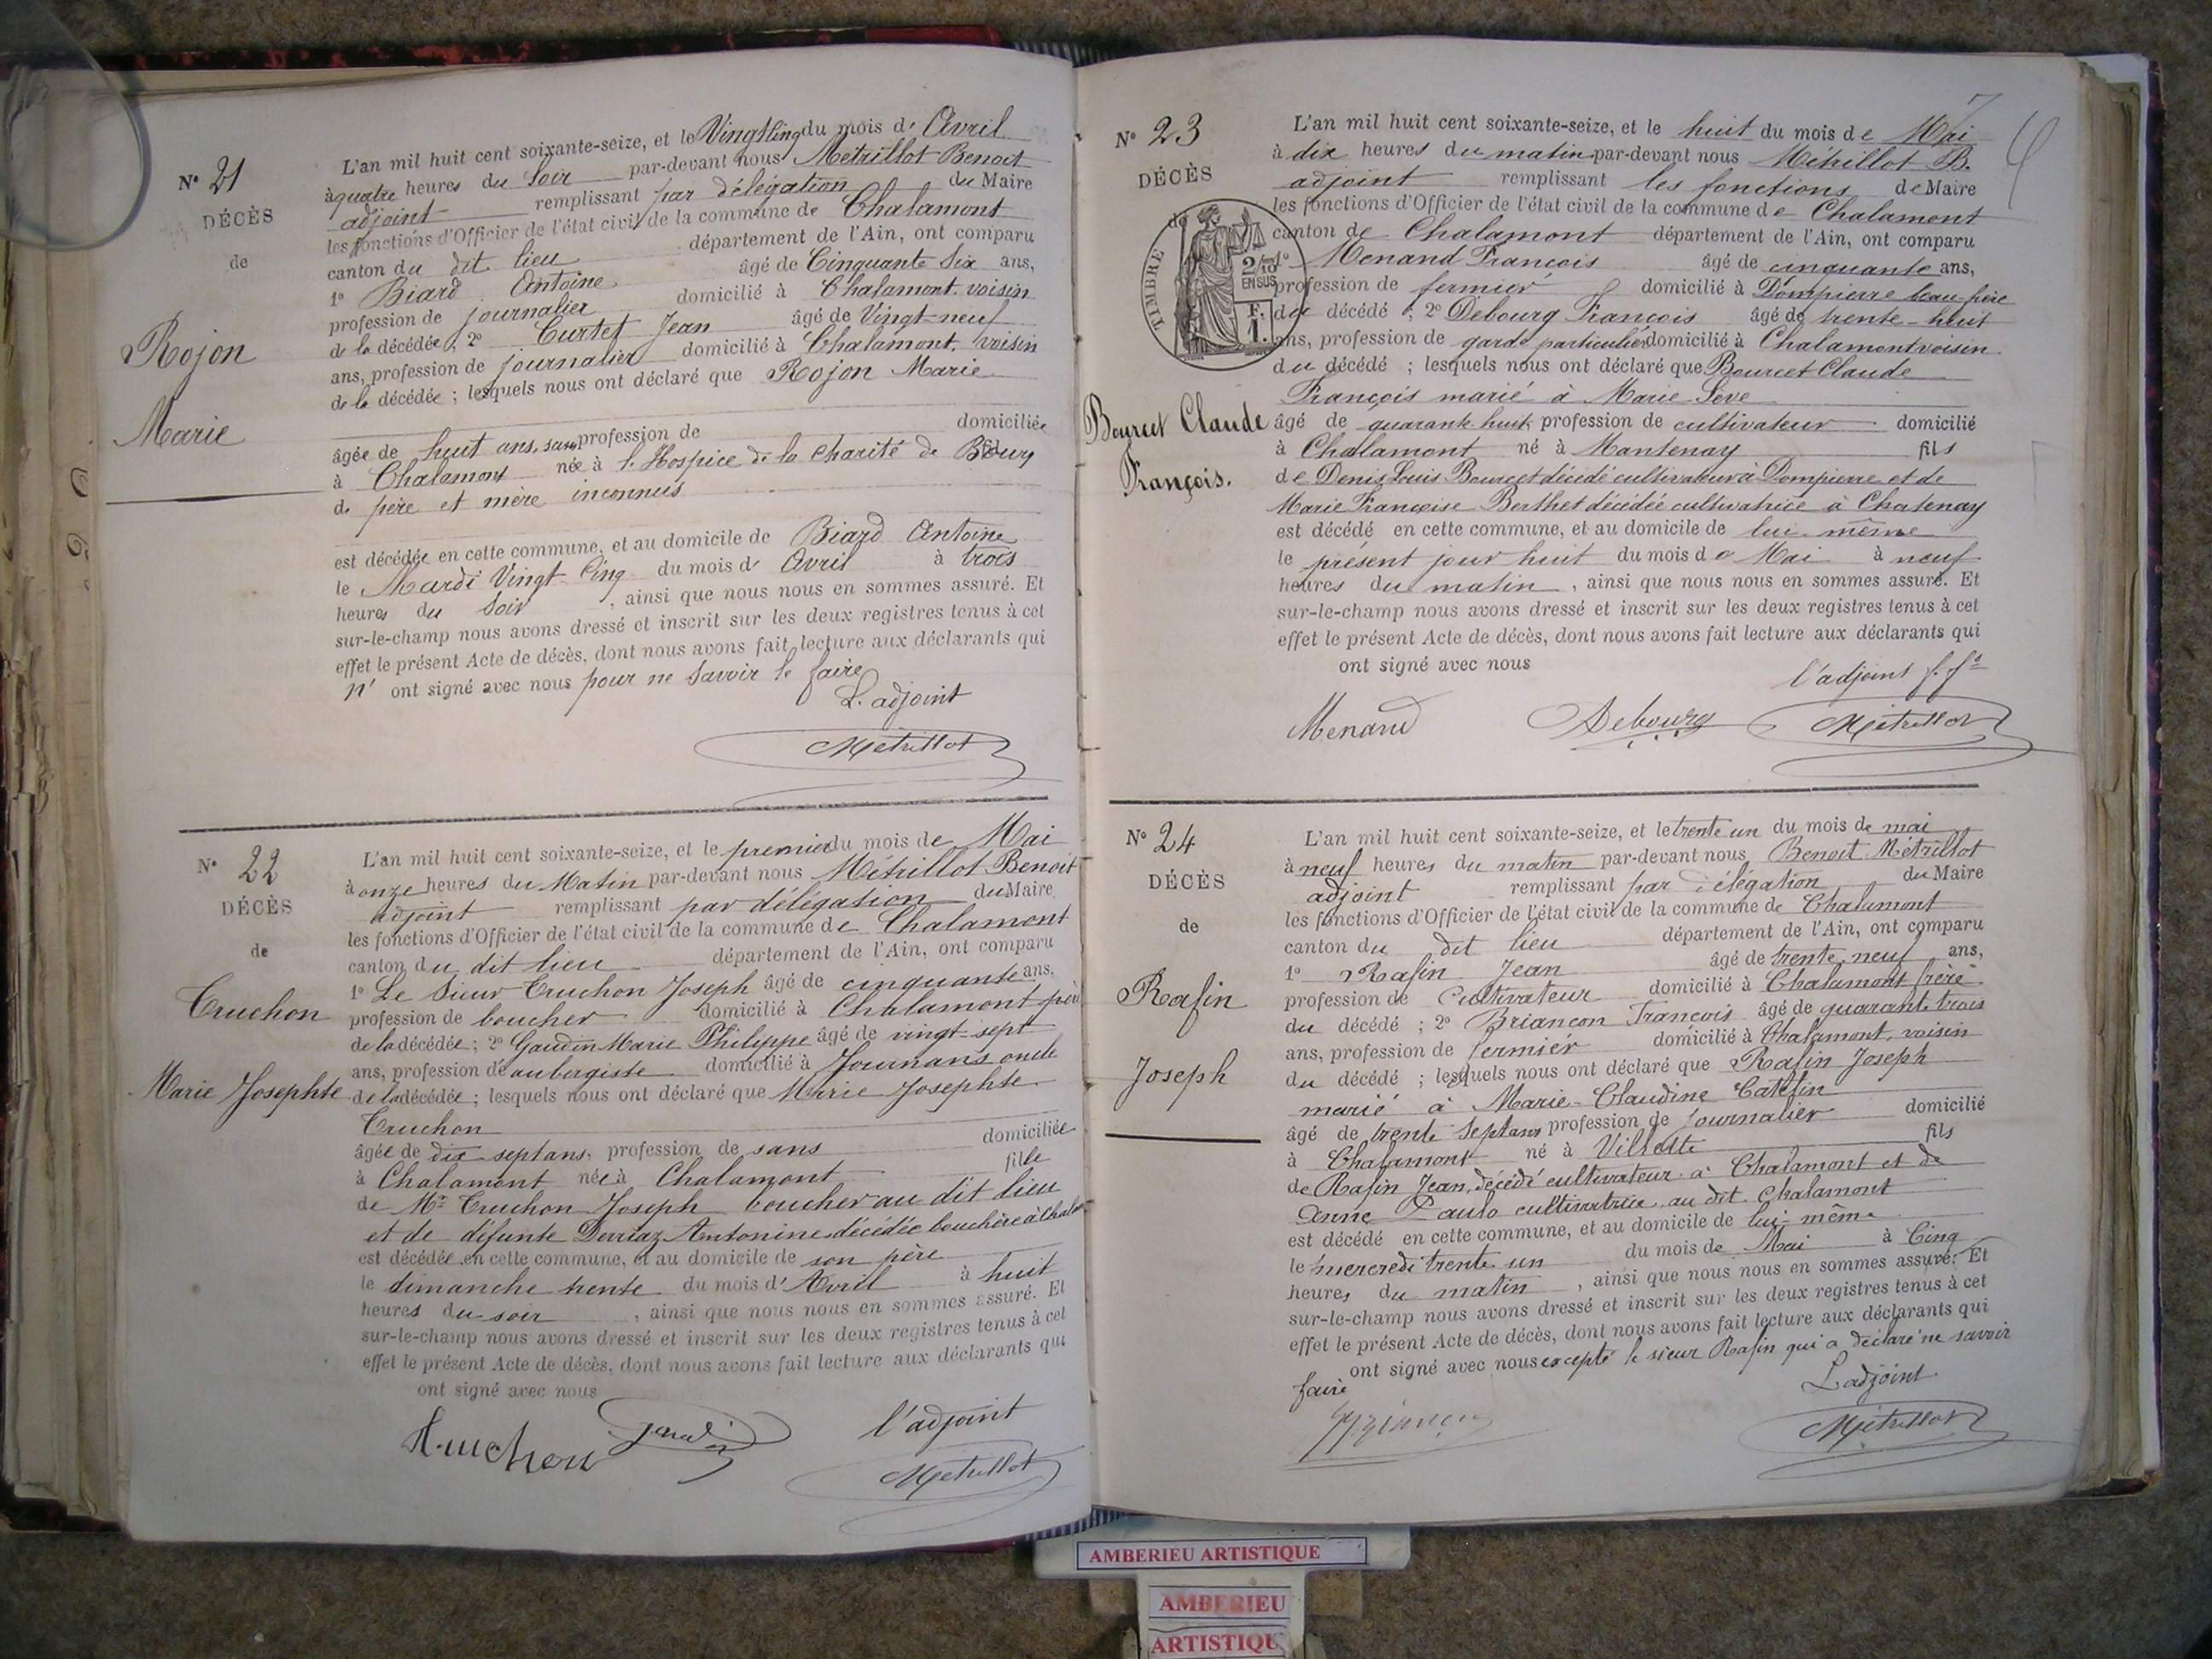 N° 21
DÉCÈS
de
Rojon
Marie
L'an mil huit cent soixante-seize, et le Vingt Cinq du mois d' Avril
à quatre heures du Soir par-devant nous Métrillot Benoit
adjoint remplissant par délégation du Maire
les fonctions d'Officier de l'état civil de la commune de Chalamont
canton du dit lieu département de l'Ain, ont comparu
1° Biard Antoine âgé de Cinquante Six ans,
profession de journalier domicilié à Chalamont voisin
de la décédée ; 2° Curtet Jean âgé de Vingt-neuf
ans, profession de journalier domicilié à Chalamont, voisin
de la décédée ; lesquels nous ont déclaré que Rojon Marie
âgée de huit ans, sans profession de domiciliée
à Chalamont née à l'Hospice de la Charité de Bourg
de père et mère inconnus
est décédée en cette commune, et au domicile de Biard Antoine
le Mardi Vingt-Cinq du mois d' Avril à trois
heures du Soir , ainsi que nous nous en sommes assuré. Et
sur-le-champ nous avons dressé et inscrit sur les deux registres tenus à cet
effet le présent Acte de décès, dont nous avons fait lecture aux déclarants qui
n' ont signé avec nous pour ne Savoir le faire
L'adjoint
Métrillot
N° 22
DÉCÈS
de
Truchon
Marie Josephte
L'an mil huit cent soixante-seize, et le premier du mois de Mai
à onze heures du Matin par-devant nous Métrillot Benoit
adjoint remplissant par délégation du Maire
les fonctions d'Officier de l'état civil de la commune de Chalamont
canton du dit lieu département de l'Ain, ont comparu
1° Le Sieur Truchon Joseph âgé de cinquante ans,
profession de boucher domicilié à Chalamont père
de la décédée ; 2° Gaudin Marie Philippe âgé de vingt-sept
ans, profession de aubergiste domicilié à Journans oncle
de la décédée ; lesquels nous ont déclaré que Marie Josephte
Truchon
âgée de dix-sept ans, profession de sans domiciliée
à Chalamont née à Chalamont fille
de Mr Truchon Joseph boucher au dit lieu
et de défunte Derriaz Antonine décédée bouchère à Chalam
est décédée en cette commune, et au domicile de son père
le dimanche trente du mois d' Avril à huit
heures du soir , ainsi que nous nous en sommes assuré. Et
sur-le-champ nous avons dressé et inscrit sur les deux registres tenus à cet
effet le présent Acte de décès, dont nous avons fait lecture aux déclarants qui
ont signé avec nous
Truchon
l'adjoint
Métrillot
7
N° 23
DÉCÈS
de
TIMBRE
2/10
EN SUS
F.
1.
Bourcet Claude
François.
L'an mil huit cent soixante-seize, et le huit du mois de Mai
à dix heures du matin par-devant nous Métrillot B.
adjoint remplissant les fonctions de Maire
les fonctions d'Officier de l'état civil de la commune de Chalamont
canton de Chalamont département de l'Ain, ont comparu
1° Menand François âgé de cinquante ans,
profession de fermier domicilié à Dompierre beau-frère
du décédé ; 2° Debourg François âgé de trente-huit
ans, profession de garde particulier domicilié à Chalamont voisin
du décédé ; lesquels nous ont déclaré que Bourcet Claude
François marié à Marie Seve
âgé de quarante huit, profession de cultivateur domicilié
à Chalamont né à Mantenay fils
de Denis Louis Bourcet décédé cultivateur à Dompierre et de
Marie Françoise Berthet décédée cultivatrice à Chatenay
est décédé en cette commune, et au domicile de lui-même
le présent jour huit du mois de Mai à neuf
heures du matin , ainsi que nous nous en sommes assuré. Et
sur-le-champ nous avons dressé et inscrit sur les deux registres tenus à cet
effet le présent Acte de décès, dont nous avons fait lecture aux déclarants qui
ont signé avec nous
l'adjoint f. fs
Menand Debourg Métrillot
N° 24
DÉCÈS
de
Rafin
Joseph
L'an mil huit cent soixante-seize, et le trente un du mois de mai
à neuf heures du matin par-devant nous Benoit Métrillot
adjoint remplissant par délégation du Maire
les fonctions d'Officier de l'état civil de la commune de Chalamont
canton du dit lieu département de l'Ain, ont comparu
1° Rafin Jean âgé de trente-neuf ans,
profession de Cultivateur domicilié à Chalamont frère
du décédé ; 2° Briancon François âgé de quarante trois
ans, profession de fermier domicilié à Chalamont, voisin
du décédé ; lesquels nous ont déclaré que Rafin Joseph
marié à Marie-Claudine Catefin
âgé de trente Sept ans profession de Journalier domicilié
à Chalamont né à Villette fils
de Rafin Jean, décédé cultivateur à Chalamont et de
Anne Paulo cultivatrice au dit Chalamont
est décédé en cette commune, et au domicile de lui-même
le mercredi trente un du mois de Mai à Cinq
heures du matin , ainsi que nous nous en sommes assuré. Et
sur-le-champ nous avons dressé et inscrit sur les deux registres tenus à cet
effet le présent Acte de décès, dont nous avons fait lecture aux déclarants qui
ont signé avec nous excepté le sieur Rafin qui a déclaré ne savoir
faire
L'adjoint
Métrillot
AMBERIEU ARTISTIQUE
AMBERIEU
ARTISTIQU